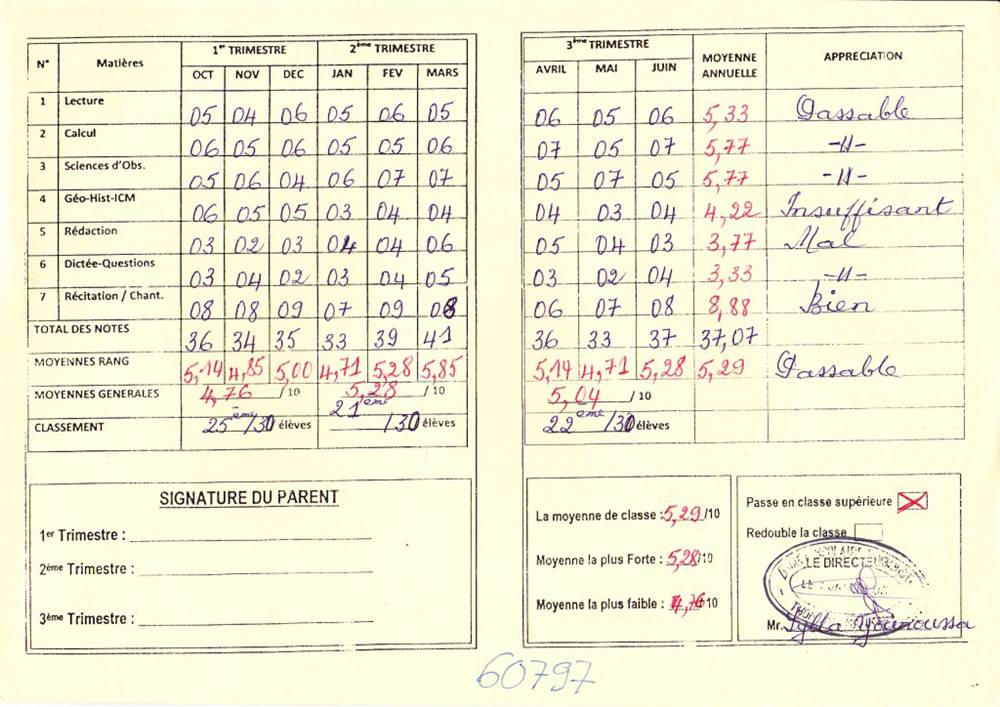 1er TRIMESTRE 2ème TRIMESTRE
N° Matières OCT NOV DEC JAN FEV MARS
1 Lecture 05 04 06 05 06 05
2 Calcul 06 05 06 05 05 06
3 Sciences d'Obs. 05 06 04 06 07 07
4 Géo-Hist-ICM 06 05 05 03 04 04
5 Rédaction 03 02 03 04 04 06
6 Dictée-Questions 03 04 02 03 04 05
7 Récitation / Chant. 08 08 09 07 09 08
TOTAL DES NOTES 36 34 35 33 39 41
MOYENNES RANG 5,14 4,85 5,00 4,71 5,28 5,85
MOYENNES GENERALES 4,76 /10 5,28 /10
CLASSEMENT 25ème/30 élèves 21ème /30 élèves
SIGNATURE DU PARENT
1er Trimestre :
2ème Trimestre :
3ème Trimestre :
3ème TRIMESTRE
AVRIL MAI JUIN MOYENNE ANNUELLE APPRECIATION
06 05 06 5,33 Passable
07 05 07 5,77 -//-
05 07 05 5,77 -//-
04 03 04 4,22 Insuffisant
05 04 03 3,77 Mal
03 02 04 3,33 -//-
06 07 08 8,88 Bien
36 33 37 37,07
5,14 4,71 5,28 5,29 Passable
5,04 /10
22ème /30 élèves
La moyenne de classe : 5,29/10
Moyenne la plus Forte : 5,28/10
Moyenne la plus faible : 4,76/10
Passe en classe supérieure
Redouble la classe
LE DIRECTEUR
Mr. Sylla Younoussa
60797